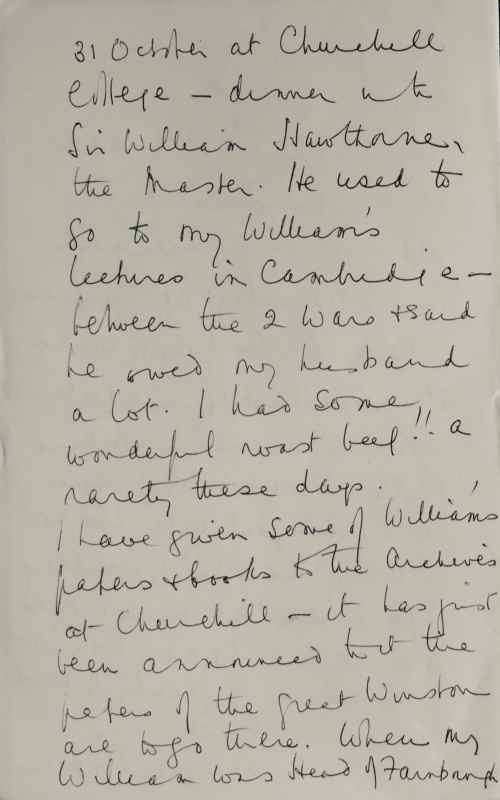 31 October at Churchill
College – dinner with
Sir William Hawthorne,
the Master. He used to
go to my William's
lectures in Cambridge –
between the 2 Wars & said
he owed my husband
a lot. I had some
wonderful roast beef!! a
rarety these days.
I have given some of William's
papers & books to the Archives
at Churchill – it has just
been announced that the
papers of the great Winston
are to go there. When my
William was Head of Farnborough